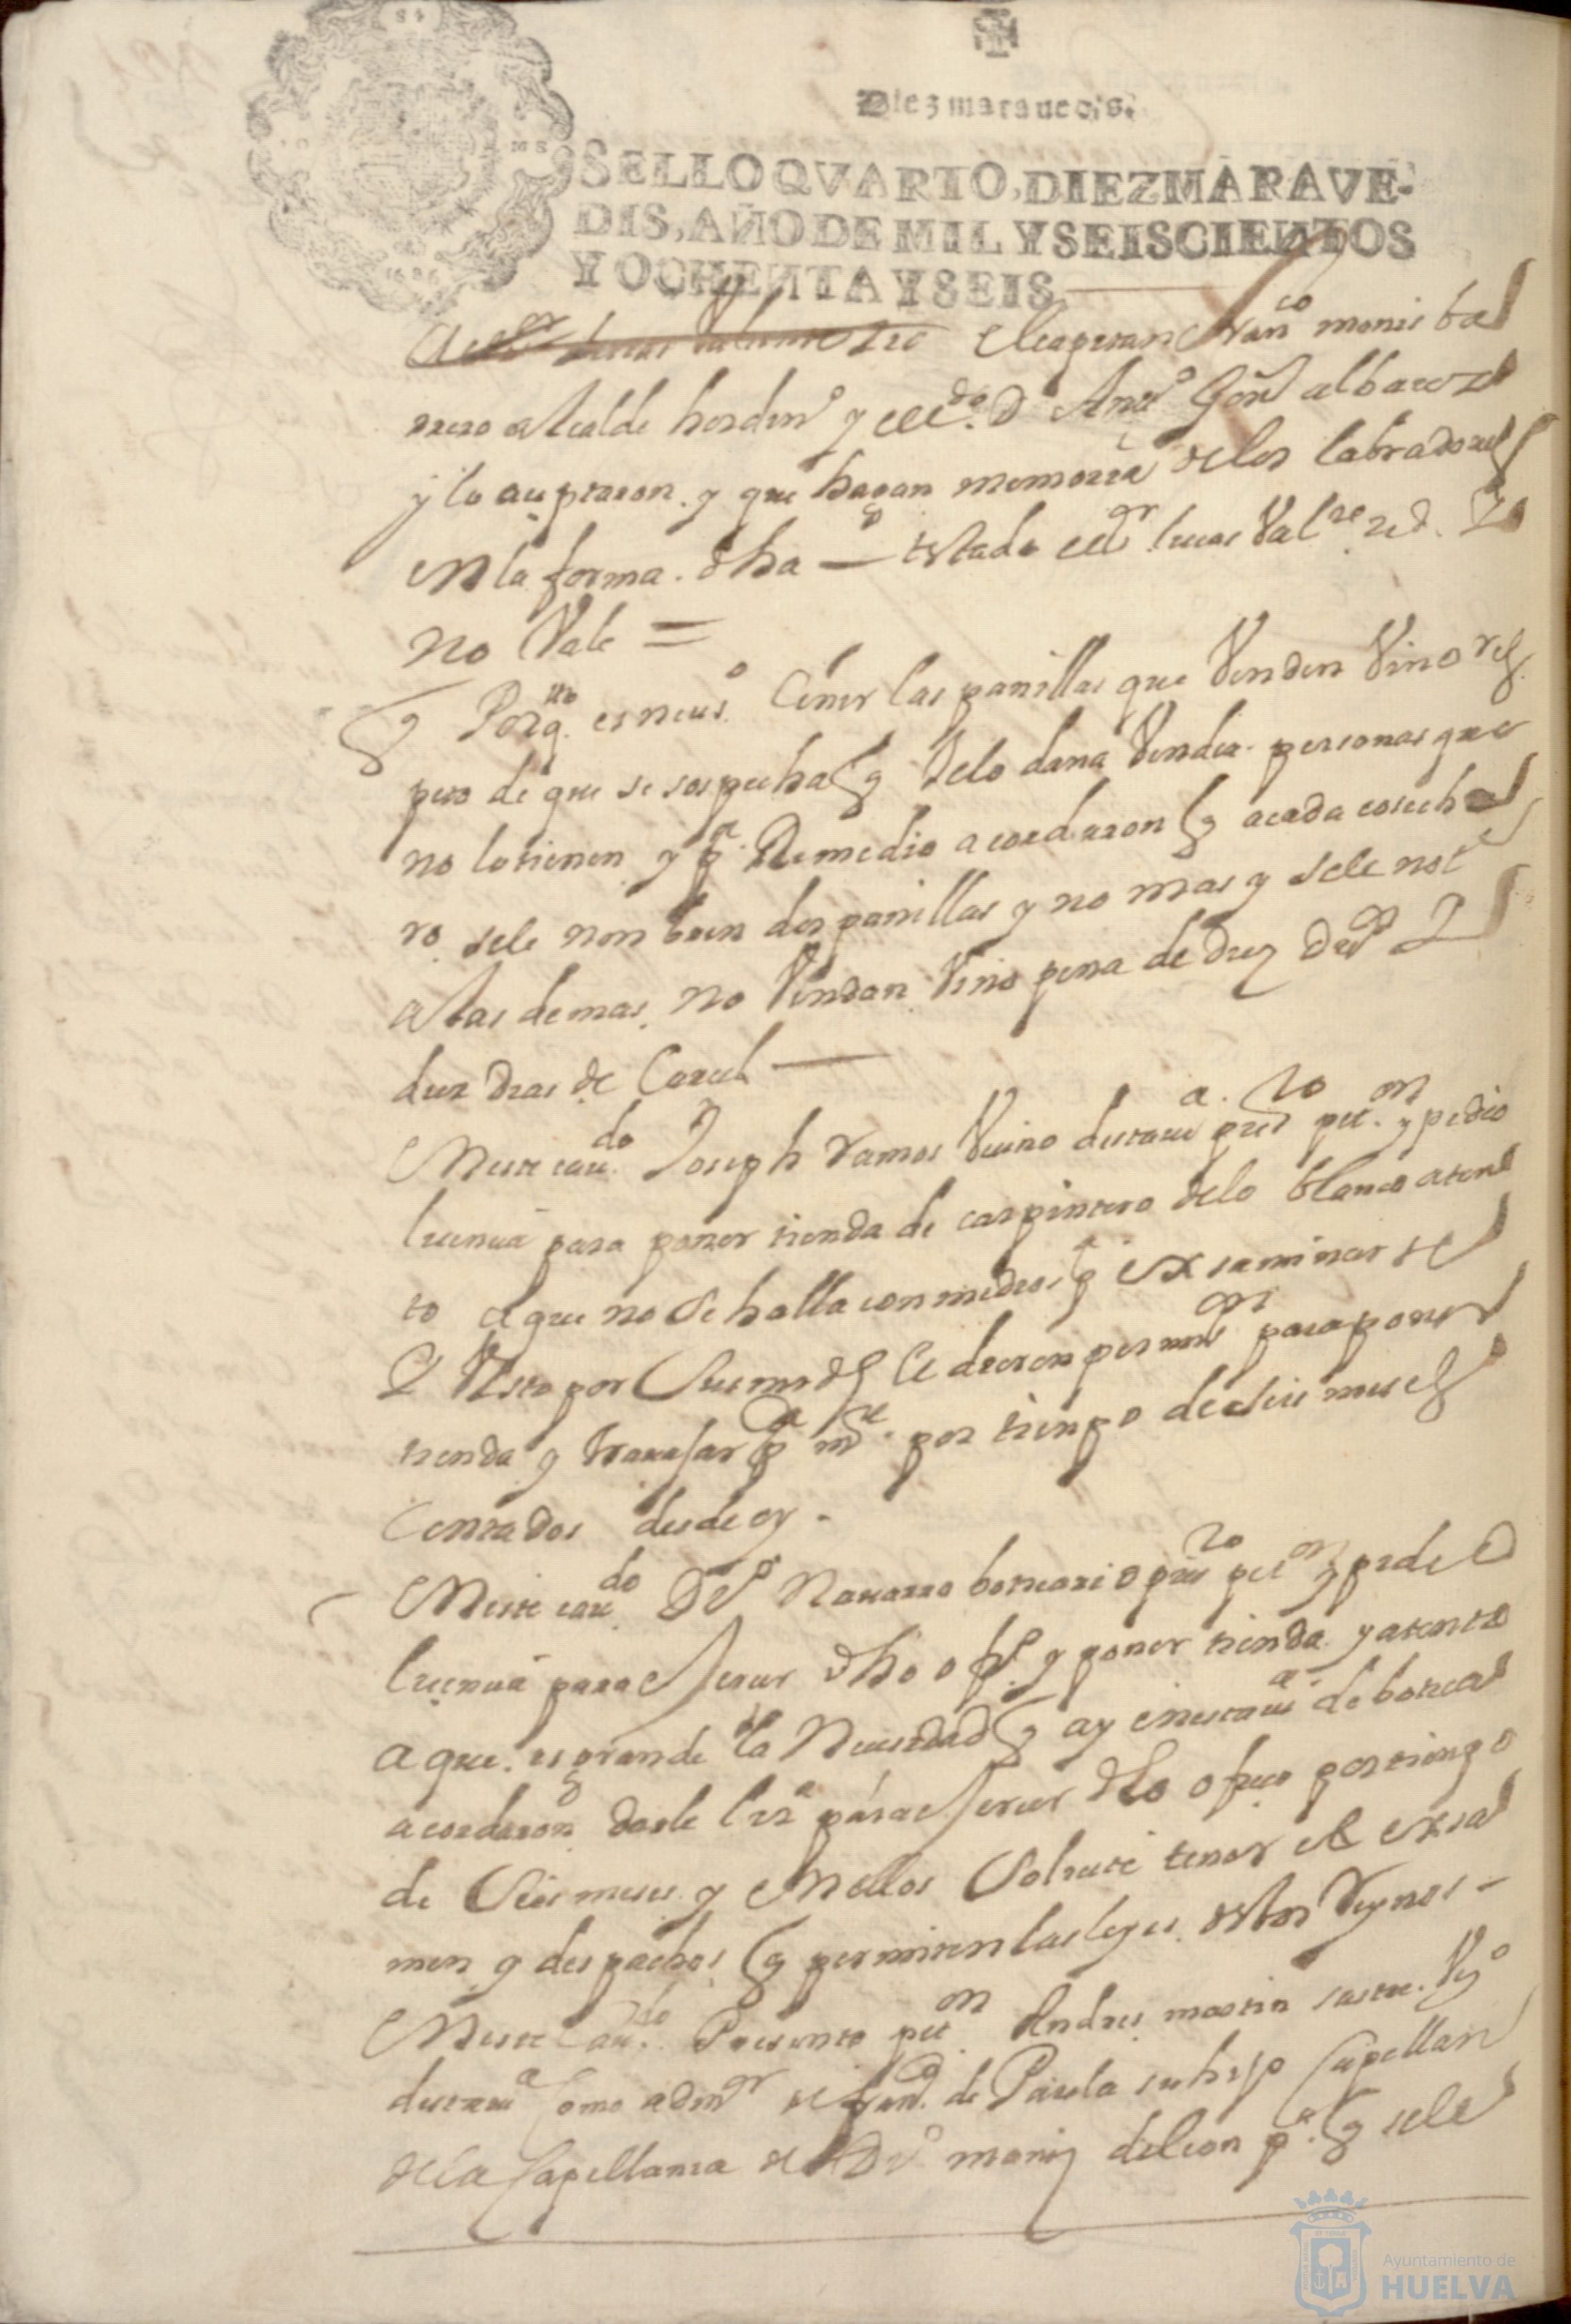 Diez marauedis.
SELLO QVARTO, DIEZ MARAVE-
DIS, AÑO DE MIL Y SEISCIENTOS
Y OCHENTA Y SEIS
1686
el capitan Juan moniz ba
alcalde hordin.º y D. Anº Gon albarez
y lo aceptaron. y que hagan memoria de los labradores
en la forma. dha — testado lucas Val
no Vale =
Porq.to es neces.º las panillas que Venden Vino res
peto de que se sospecha q de lo dan a Vender personas que
no lo tienen y p.ª Remedio acordaron q a cada coseche
ro. se le nonbren dos panillas y no mas y se le not
a las demas no Vendan Vino pena de diez
diez dias de Carcel —
En este cau.do Joseph Ramos Vecino desta uª pres.to pet.on y pedio
licencia para poner tienda de carpintero de lo blanco aten
to a que no se halla con medios q exsaminarse
Y Visto por Sus mrds le dieron permi.on para poner
tienda y trauajar por tienpo de seis meses
Contados desde oy.
En este cau.do Dº Nauarro boticario pres.to pet.on y pide
licencia para exerser dho ofº y poner tienda y atento
a que es grande la Necesidad q ay en esta uª de botica
acordaron darle lizª para exerser dho ofisio por tienpo
de Seis meses y en ellos Solicite tener el exsa
men y despachos q permiten las leyes destos Reynos -
En este Cau.do Presento pet.on Andres martin sastre. Vº
desta uª Como adm.or de fran.co de Paula su hijo Capellan
de la Capellania de Dº moniz de leon pª q se le
Ayuntamiento de
HUELVA